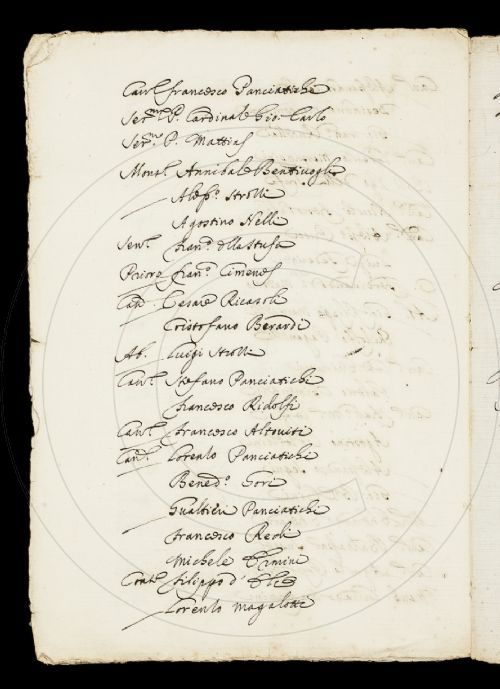 Cav.r Francesco Panciatichi
Ser.mo P. Cardinale Gio: Carlo
Ser.mo P. Mattias
Mons.r Annibale Bentivogli
Aless.o Strozzi
Agostino Nelli
Sen.r Fran.o della Stufa
Priore Fran.o Cimenes
Cav.r Cesare Ricasoli
Cristofano Berardi
Ab. Luigi Strozzi
Cav.r Stefano Panciatichi
Francesco Ridolfi
Cav.r Francesco Altoviti
Cav.r Lorenzo Panciatichi
Bened.o Gori
Gualtieri Panciatichi
Francesco Redi
Michele
Filippo d'
Lorenzo Magalotti